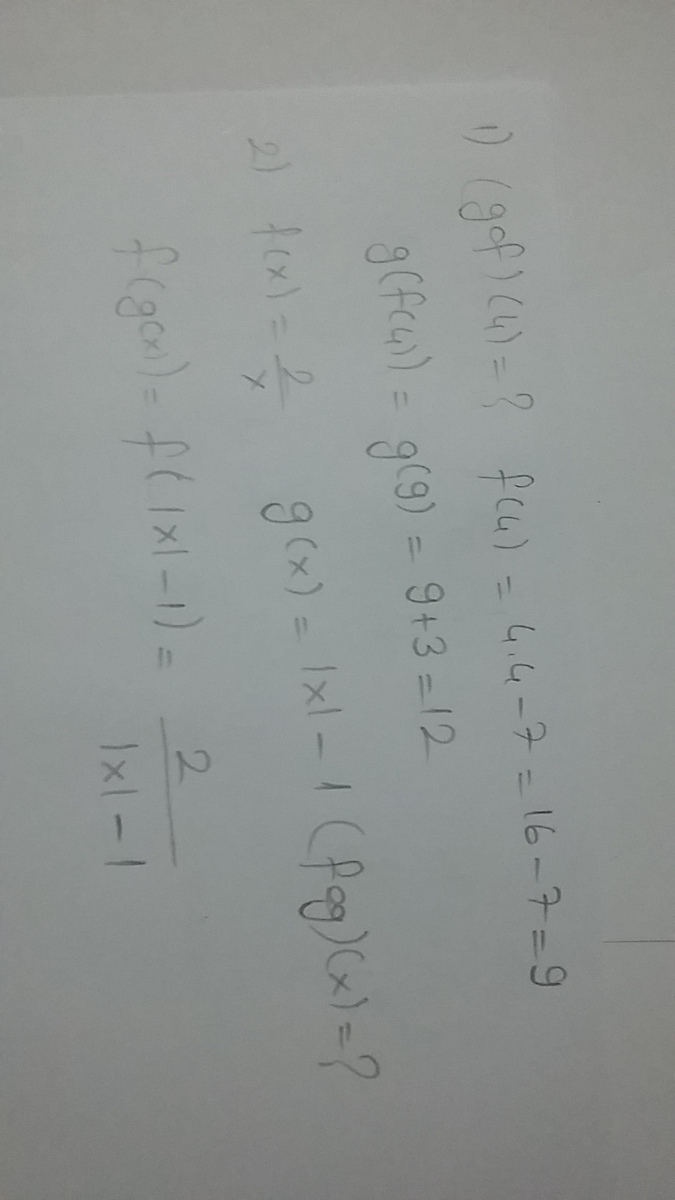 1) (gof)(4) = ? f(4) = 4.4 - 7 = 16 - 7 = 9
g(f(4)) = g(9) = 9+3 = 12
2) f(x) = 2/x g(x) = |x| - 1 (fog)(x) = ?
f(g(x)) = f(|x| - 1) = 2/(|x| - 1)